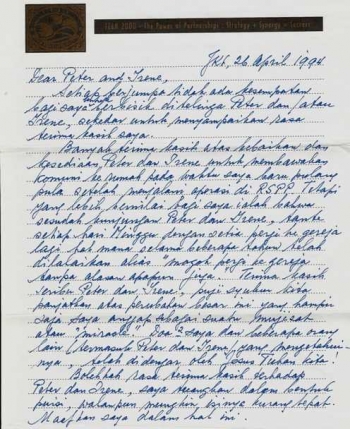 YEAR 2000 - The Power of Partnerships : Strategy • Synergy • Success
Jkt, 26 April 1994.
Dear Peter and Irene,
Setiap berjumpa tidak ada kesempatan
bagi saya untuk berbisik di telinga Peter dan/atau
Irene, sekedar untuk menyampaikan rasa
terima kasih saya.
Banyak terima kasih atas kebaikan dan
kesediaan Peter dan Irene untuk membawakan
komuni ke rumah pada waktu saya baru pulang
pula setelah menjalani operasi di RSPP. Tetapi
yang lebih bernilai bagi saya ialah bahwa
sesudah kunjungan Peter dan Irene, tante
setiap hari Minggu dengan setia pergi ke gereja
lagi hal mana selama beberapa tahun telah
dilalaikan alias "mogok pergi ke gereja
tanpa alasan apapun juga. Terima kasih
seribu Peter dan Irene, puji syukur kita
panjatkan atas perubahan besar ini yang hampir
saja saya anggap sebagai suatu mujizat
atau "miracle". Doa2 saya dan beberapa orang
lain (termasuk Peter dan Irene) yang mengetahui-
nya, telah didengar oleh Yesus Tuhan kita!
Bolehkah rasa terima kasih terhadap
Peter dan Irene, saya tuangkan dalam bentuk
puisi, walaupun mungkin isinya kurang tepat.
Maafkan saya dalam hal ini.